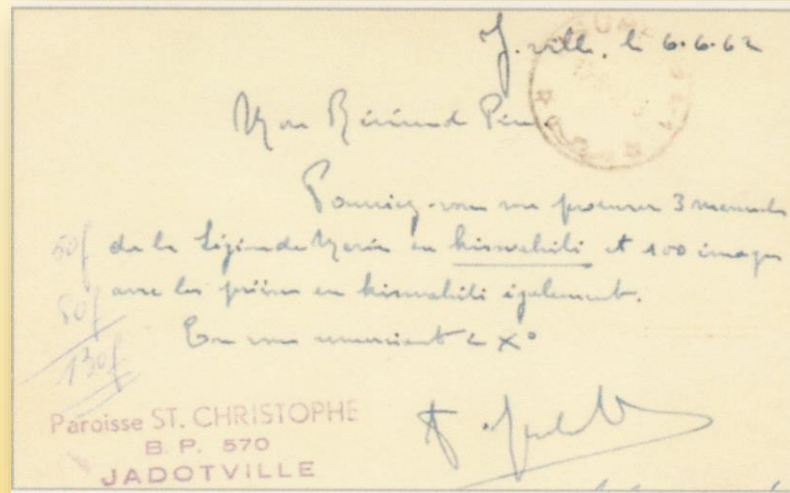 J. ville, le 6.6.62
Mon Révérend Père
Pourriez-vous me procurer 3 manuels
de la Légion de Marie en kiswahili et 100 images
avec les prières en kiswahili également.
En vous remerciant
50f
80f
130f
Paroisse ST. CHRISTOPHE
B. P. 570
JADOTVILLE